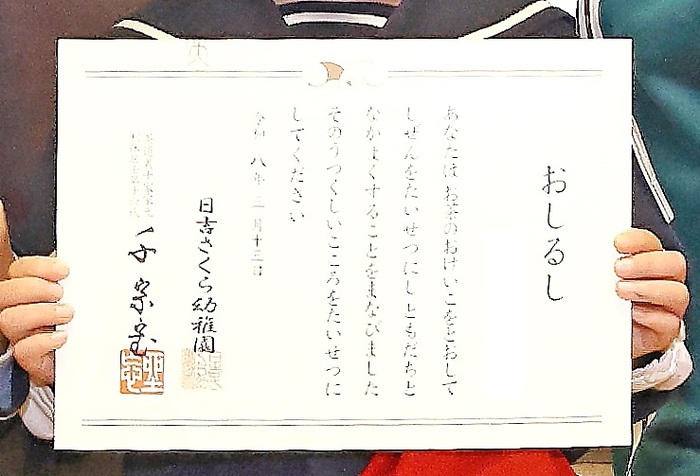 おしるし
あなたは お茶のおけいこをとおして
しぜんをたいせつにし ともだちと
なかよくすることをまなびました
そのうつくしいこころをたいせつに
してください
令和 八年 三月十三日
日吉さくら幼稚園
千 宗室